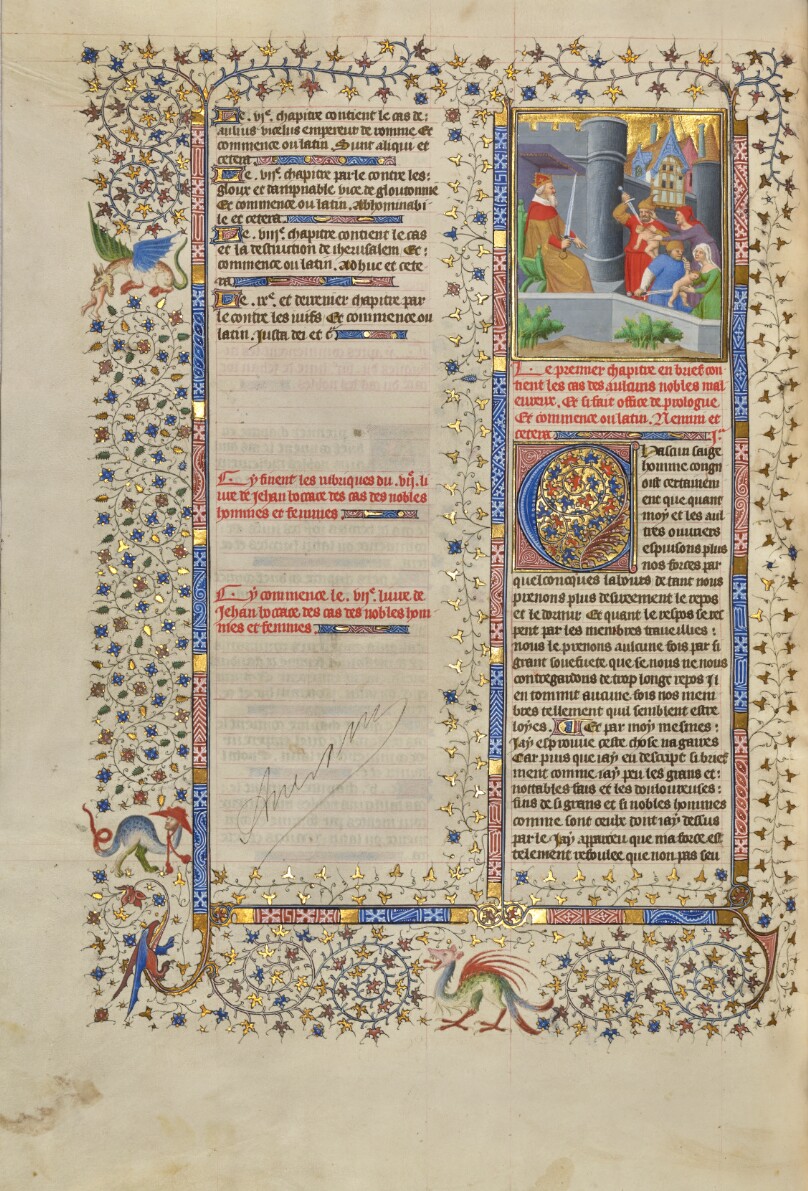 Le .vie. chapitre contient le cas de:
aulius vitelius empereur de romme Et
commence ou latin. Sunt aliqui et
cetera
Le .viie. chapitre parle contre les:
gloux et dampnable vice de gloutonnie
Et commence ou latin. Abhominabi
le et cetera.
Le .viiie. chapitre contient le cas
et la destruction de iherusalem Et:
commence ou latin. Adhuc et cete
ra
Le .ixe. et derrenier chapitre par
le contre les iuifs Et commence ou
latin. Iusta dei et c̃
Cy finent les rubriques du .vije. li
ure de Jehan bocace des cas des nobles
hommes et femmes
Cy commence le .viie. liure de
Jehan bocace des cas des nobles hom
mes et femmes
Le premier chapitre en brief con
tient les cas des aulcuns nobles mal
eureux. Et si fait office de prologue
Et commence ou latin. Nemini et
cetera
Chascun saige
homme congn
oist certainem
ent que quant
moy et les aul
tres ouuriers
espuisons plus
nos forces par
quelconcques labours de tant nous
prenons plus desireement le repos
et le dormir Et quant le repos se res
pent par les membres traueillies:
nous le prenons aulcune fois par si
grant souefuete que se nous ne nous
contregardons de trop longe repos Il
en tommit aucune fois nos mem
bres tellement quil semblent estre
loyes. Et par moy mesmes:
Jay esprouue ceste chose nagaires
Car puis que iay en descript si brief
ment comme iay peu les grans et:
nottables fais et les douloureuses:
fins de si grans et si nobles hommes
comme sont ceulx dont iay dessus
parle Jay apperceu que ma force est
telement refoulee que non pas seu